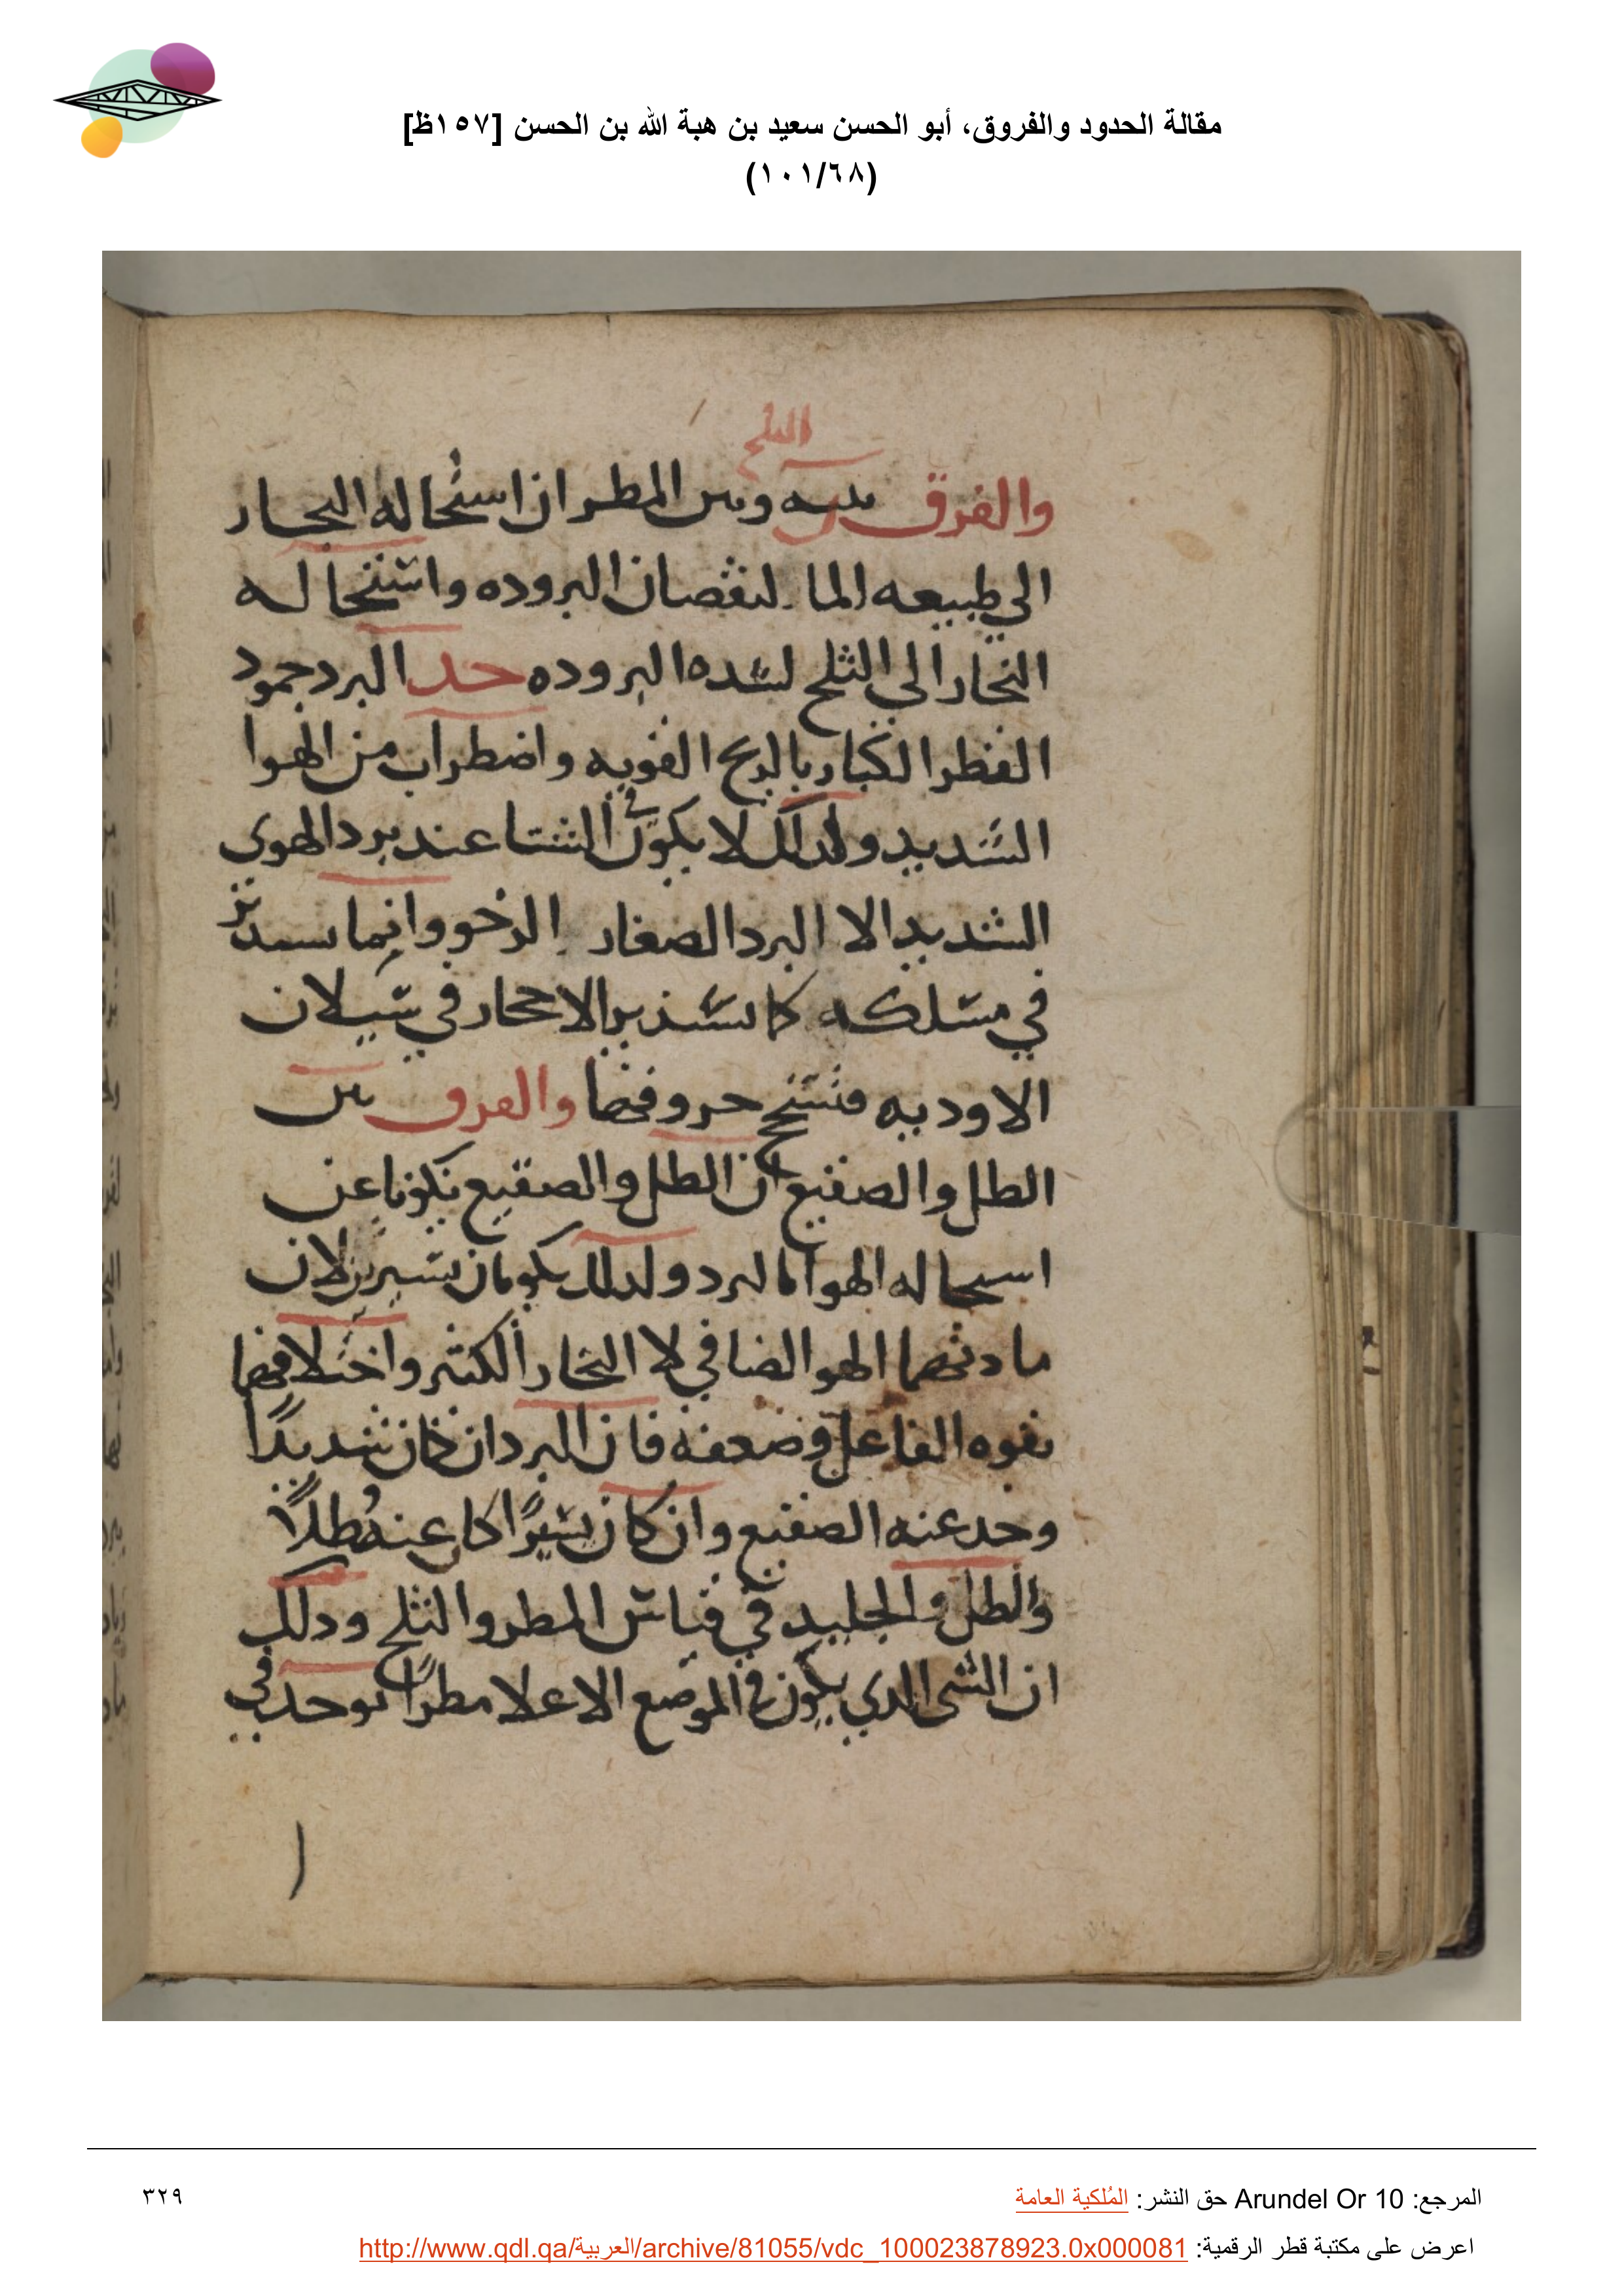 مقالة الحدود والفروق، أبو الحسن سعيد بن هبة الله بن الحسن [١٥٧ظ]
(١٠١/٦٨)
الثلج
والفرق بينه وبين المطر ان استحاله البخار
الى طبيعه الما لنقصان البروده واستحاله
البخار الى الثلج لشده البروده حد البرد جمود
القطر الكبار بالريح القويه واضطراب من الهوا
الشديد ولذلك لا يكون في الشتا عند برد الهوى
الشديد الا البرد الصغار الرخو وانما يستدير
في مسلكه كما تستدير الاحجار في سيلان
الاوديه فتنسحج حروفها والفرق بين
الطل والصقيع ان الطل والصقيع تكونا عن
استحاله الهوا بالبرد ولذلك يكونان يسيرين لان
مادتهما الهوا الصافي لا البخار الكثير واختلافهما
بقوه الفاعل وضعفه فان البرد ان كان شديدًا
وجد عنه الصقيع وان كان يسيرًا كان عنه طلًا
والطل والجليد في قياس المطر والثلج وذلك
ان الشى الذي يكون في الموضع الاعلا مطرًا يوجد في
المرجع: Arundel Or 10 حق النشر: المُلكية العامة
٣٢٩
اعرض على مكتبة قطر الرقمية: http://www.qdl.qa/العربية/archive/81055/vdc_100023878923.0x000081